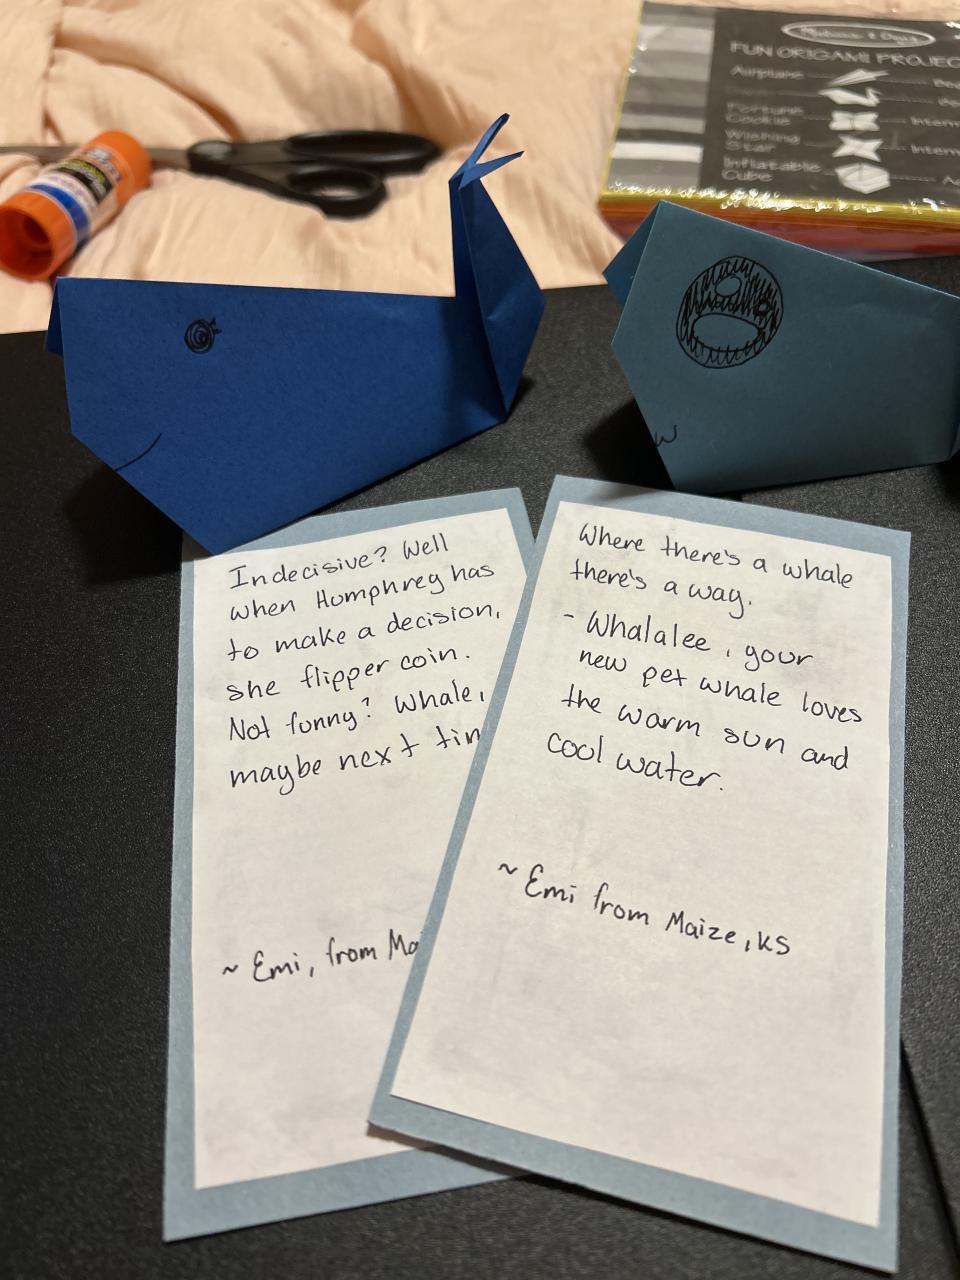 FUN ORIGAMI PROJEC
Airplane
Fortune
Cookie
Wishing
Star
Inflatable
Cube
Indecisive? Well
when Humphrey has
to make a decision,
she flipper coin.
Not funny? Whale,
maybe next tim
~ Emi, from Ma
Where there's a whale
there's a way.
- Whalalee, your
new pet whale loves
the warm sun and
cool water.
~ Emi from Maize, KS